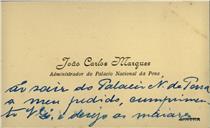 João Carlos Marques
Administrador do Palacio Nacional da Pena
Ao sair do Palacio N. da Pena
a meu pedido, cumprimen-
to V. Ex.ª e desejo as maiores